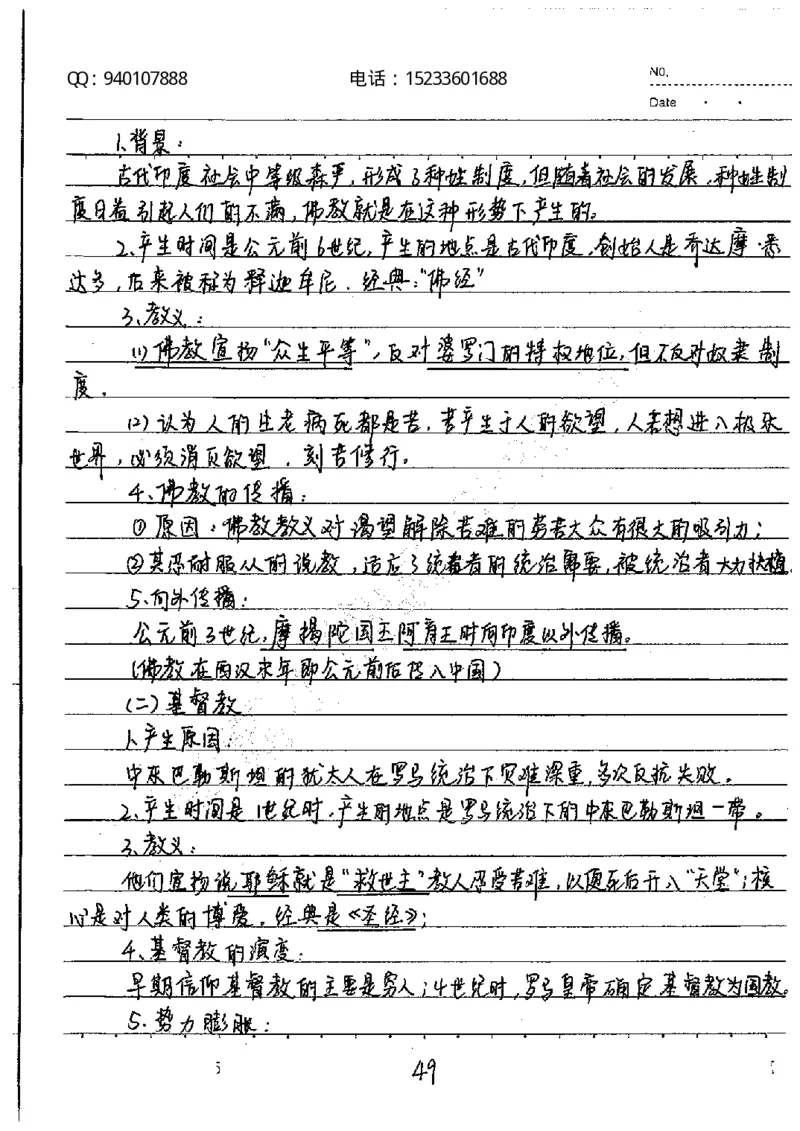 QQ：940107888 电话：15233601688 NO.
Date · ·
1、背景：
古代印度社会中等级森严，形成了种姓制度，但随着社会的发展，种姓制
度日益引起人们的不满，佛教就是在这种形势下产生的。
2、产生时间是公元前6世纪，产生的地点是古代印度，创始人是乔达摩·悉
达多，后来被称为释迦牟尼．经典：“佛经”
3、教义：
(1)佛教宣扬“众生平等”，反对婆罗门的特权地位，但不反对奴隶制
度．
(2)认为人的生老病死都是苦，苦产生于人的欲望，人若想进入极乐
世界，必须消灭欲望，刻苦修行。
4、佛教的传播：
①原因：佛教教义对渴望解除苦难的劳苦大众有很大的吸引力；
②其忍耐服从的说教，适应了统治者的统治需要，被统治者大力扶植．
5、向外传播：
公元前3世纪，摩揭陀国王阿育王时向印度以外传播。
(佛教在西汉末年即公元前后传入中国)
(二)基督教
1、产生原因：
中东巴勒斯坦的犹太人在罗马统治下灾难深重，多次反抗失败。
2、产生时间是1世纪时，产生的地点是罗马统治下的中东巴勒斯坦一带。
3、教义：
他们宣扬说耶稣就是“救世主”教人忍受苦难，以便死后升入“天堂”；核
心是对人类的博爱．经典是《圣经》；
4、基督教的演变：
早期信仰基督教的主要是穷人；4世纪时，罗马皇帝确定基督教为国教。
5．势力膨胀：
49